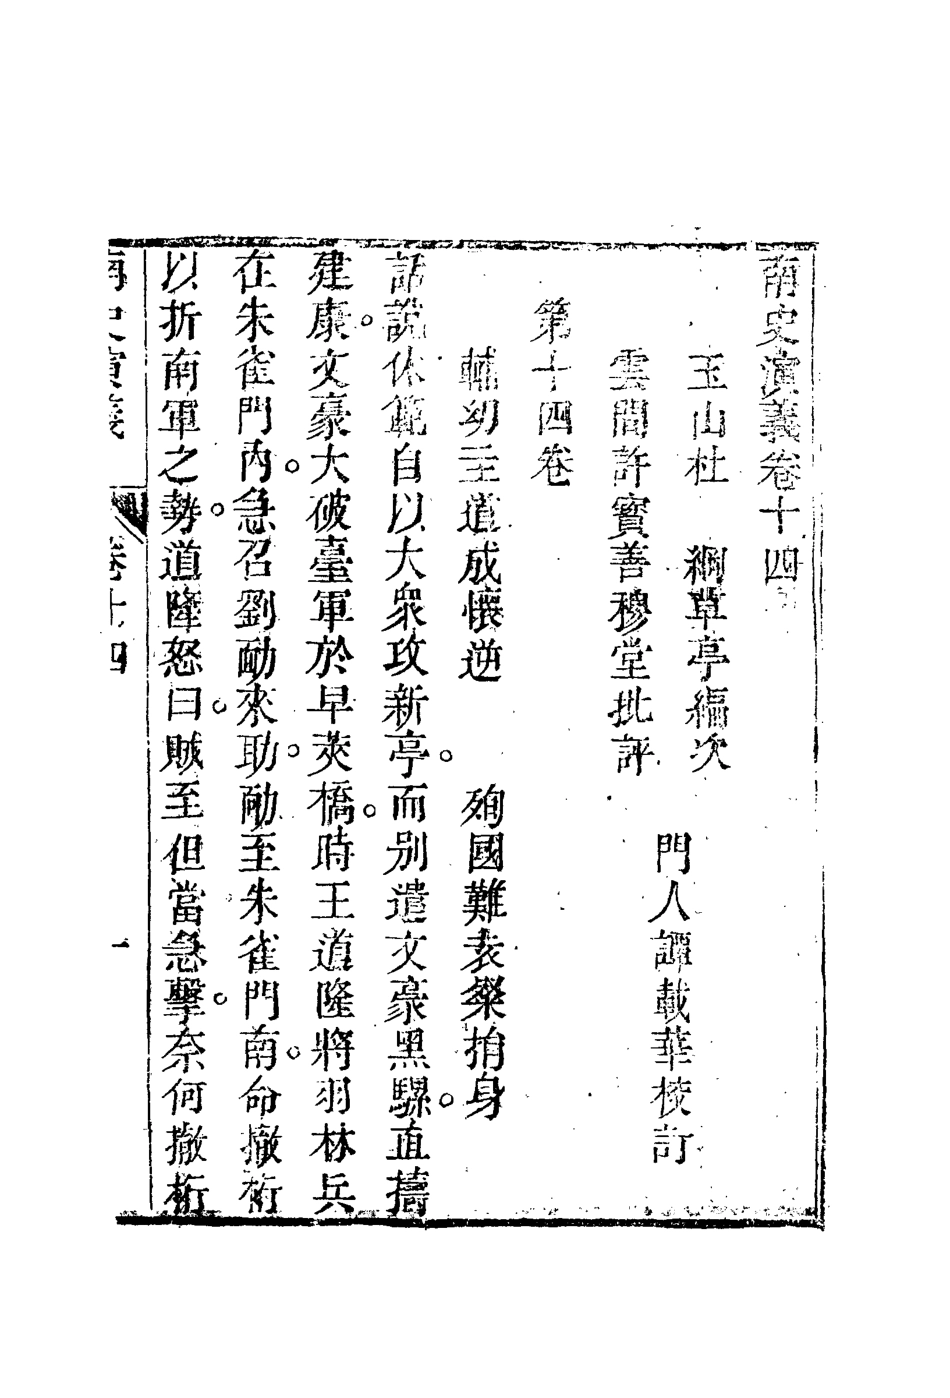 南史演義卷十四
玉山杜　綱草亭編次
雲間許寶善穆堂批評
門人譚載華校訂
第十四卷
輔幼主道成懷逆　殉國難袁粲捐身
話說休範自以大衆攻新亭。而别遣文豪黑騾。直擣
建康。文豪大破臺軍於早莢橋。時王道隆將羽林兵
在朱雀門內。急召劉勔來助。勔至朱雀門南。命撤桁
以折南軍之勢。道隆怒曰。賊至但當急擊。奈何撤桁
南史演義　卷十四　一